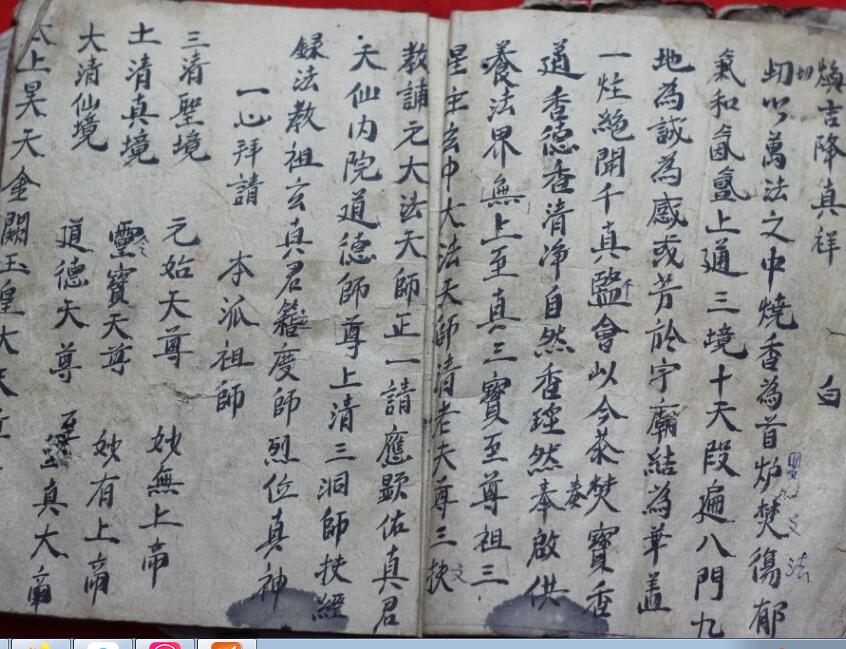 煥吉降真祥 白
切以萬法之中燒香為首炉焚傷郁
氣和氤氳上通三境十天段遍八門九
地為誠為感或芳於宇廟結為華盖
一炷絶聞千真監會以今恭焚寶香
道香德香清净自然香 然奉啟供
養法界無上至真三寶至尊祖三
星主玄中大法天師清老天尊三扶
教誦元大法天師正一請應顕佑真君
天仙内院道德師尊上清三洞師扶經
録法教祖玄真君籍度師烈位真神
一心拜請 本派祖師
三清聖境 元始天尊 妙無上帝
上清真境 靈寶天尊 妙有上帝
大清仙境 道德天尊 至真大帝
太上昊天金闕玉皇大天